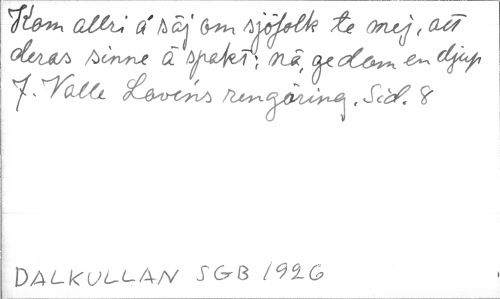 Kom allri å säj om sjöfolk te mej, att
deras sinne ä spakt; nä, ge dom en djup
J. Valle Lovéns rengöring. Sid. 8
DALKULLAN SGB 1926